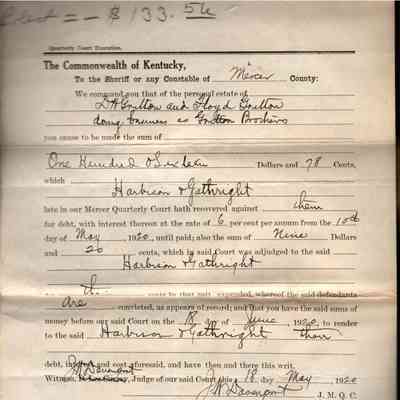 = - $133.56
Quarterly Court Execution.
The Commonwealth of Kentucky,
To the Sheriff or any Constable of Mercer County:
We command you that of the personal estate of
D H Gritton and Floyd Gritton
doing business as Gritton Brothers
you cause to be made the sum of
One Hundred & Sixteen Dollars and 78 Cents,
which Harbison & Gathright
late in our Mercer Quarterly Court hath recovered against them
for debt, with interest thereon at the rate of 6 per cent per annum from the 10th
day of May 1920, until paid; also the sum of Nine Dollars
and 20 cents, which in said Court was adjudged to the said
Harbison & Gathright
cents to that suit expended, whereof the said defendants
are convicted, as appears of record; and that you have the said sums of
money before our said Court on the 18 day of June, 1920, to render
to the said Harbison & Gathright their
debt, interest and cost aforesaid, and have then and there this writ.
Witness, J W Davenport, Judge of our said Court this 18 day May 1920
J W Davenport J. M. Q. C.